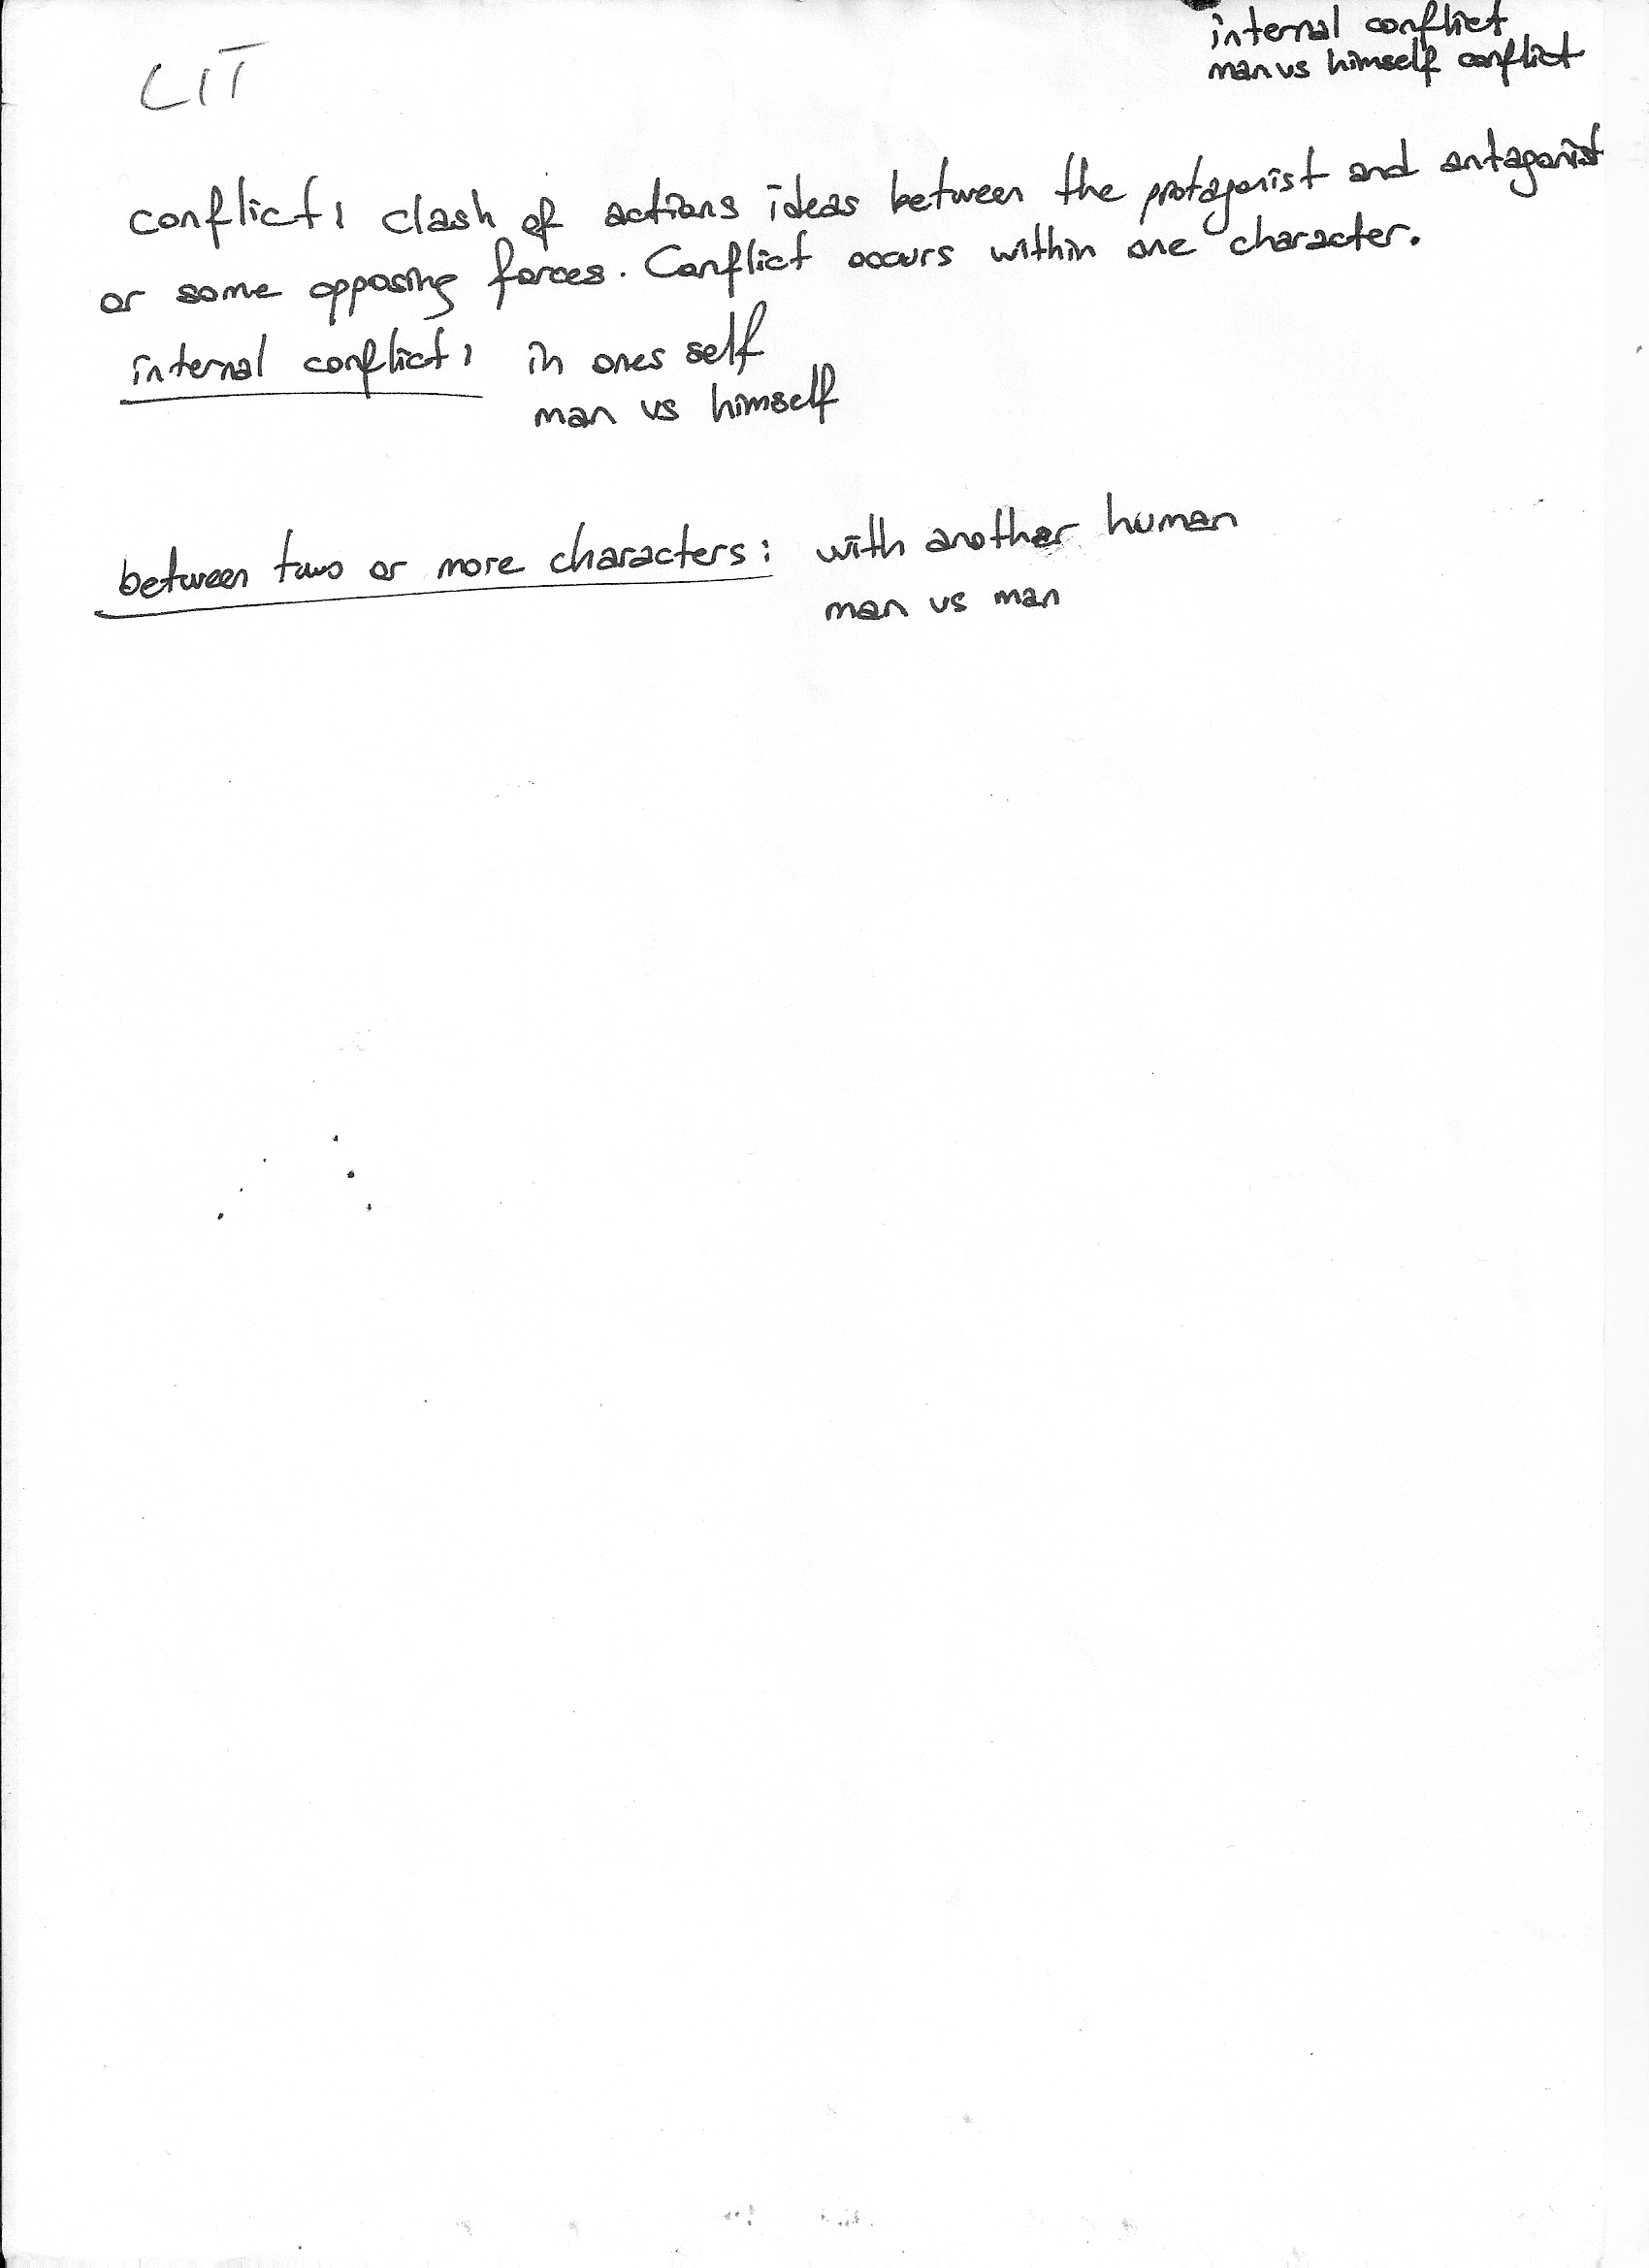 internal conflict
man vs himself conflict
LIT
conflict: clash of actions ideas between the protagonist and antagonist
or some opposing forces. Conflict occurs within one character.
internal conflict: in ones self
man vs himself
between two or more characters: with another human
man vs man